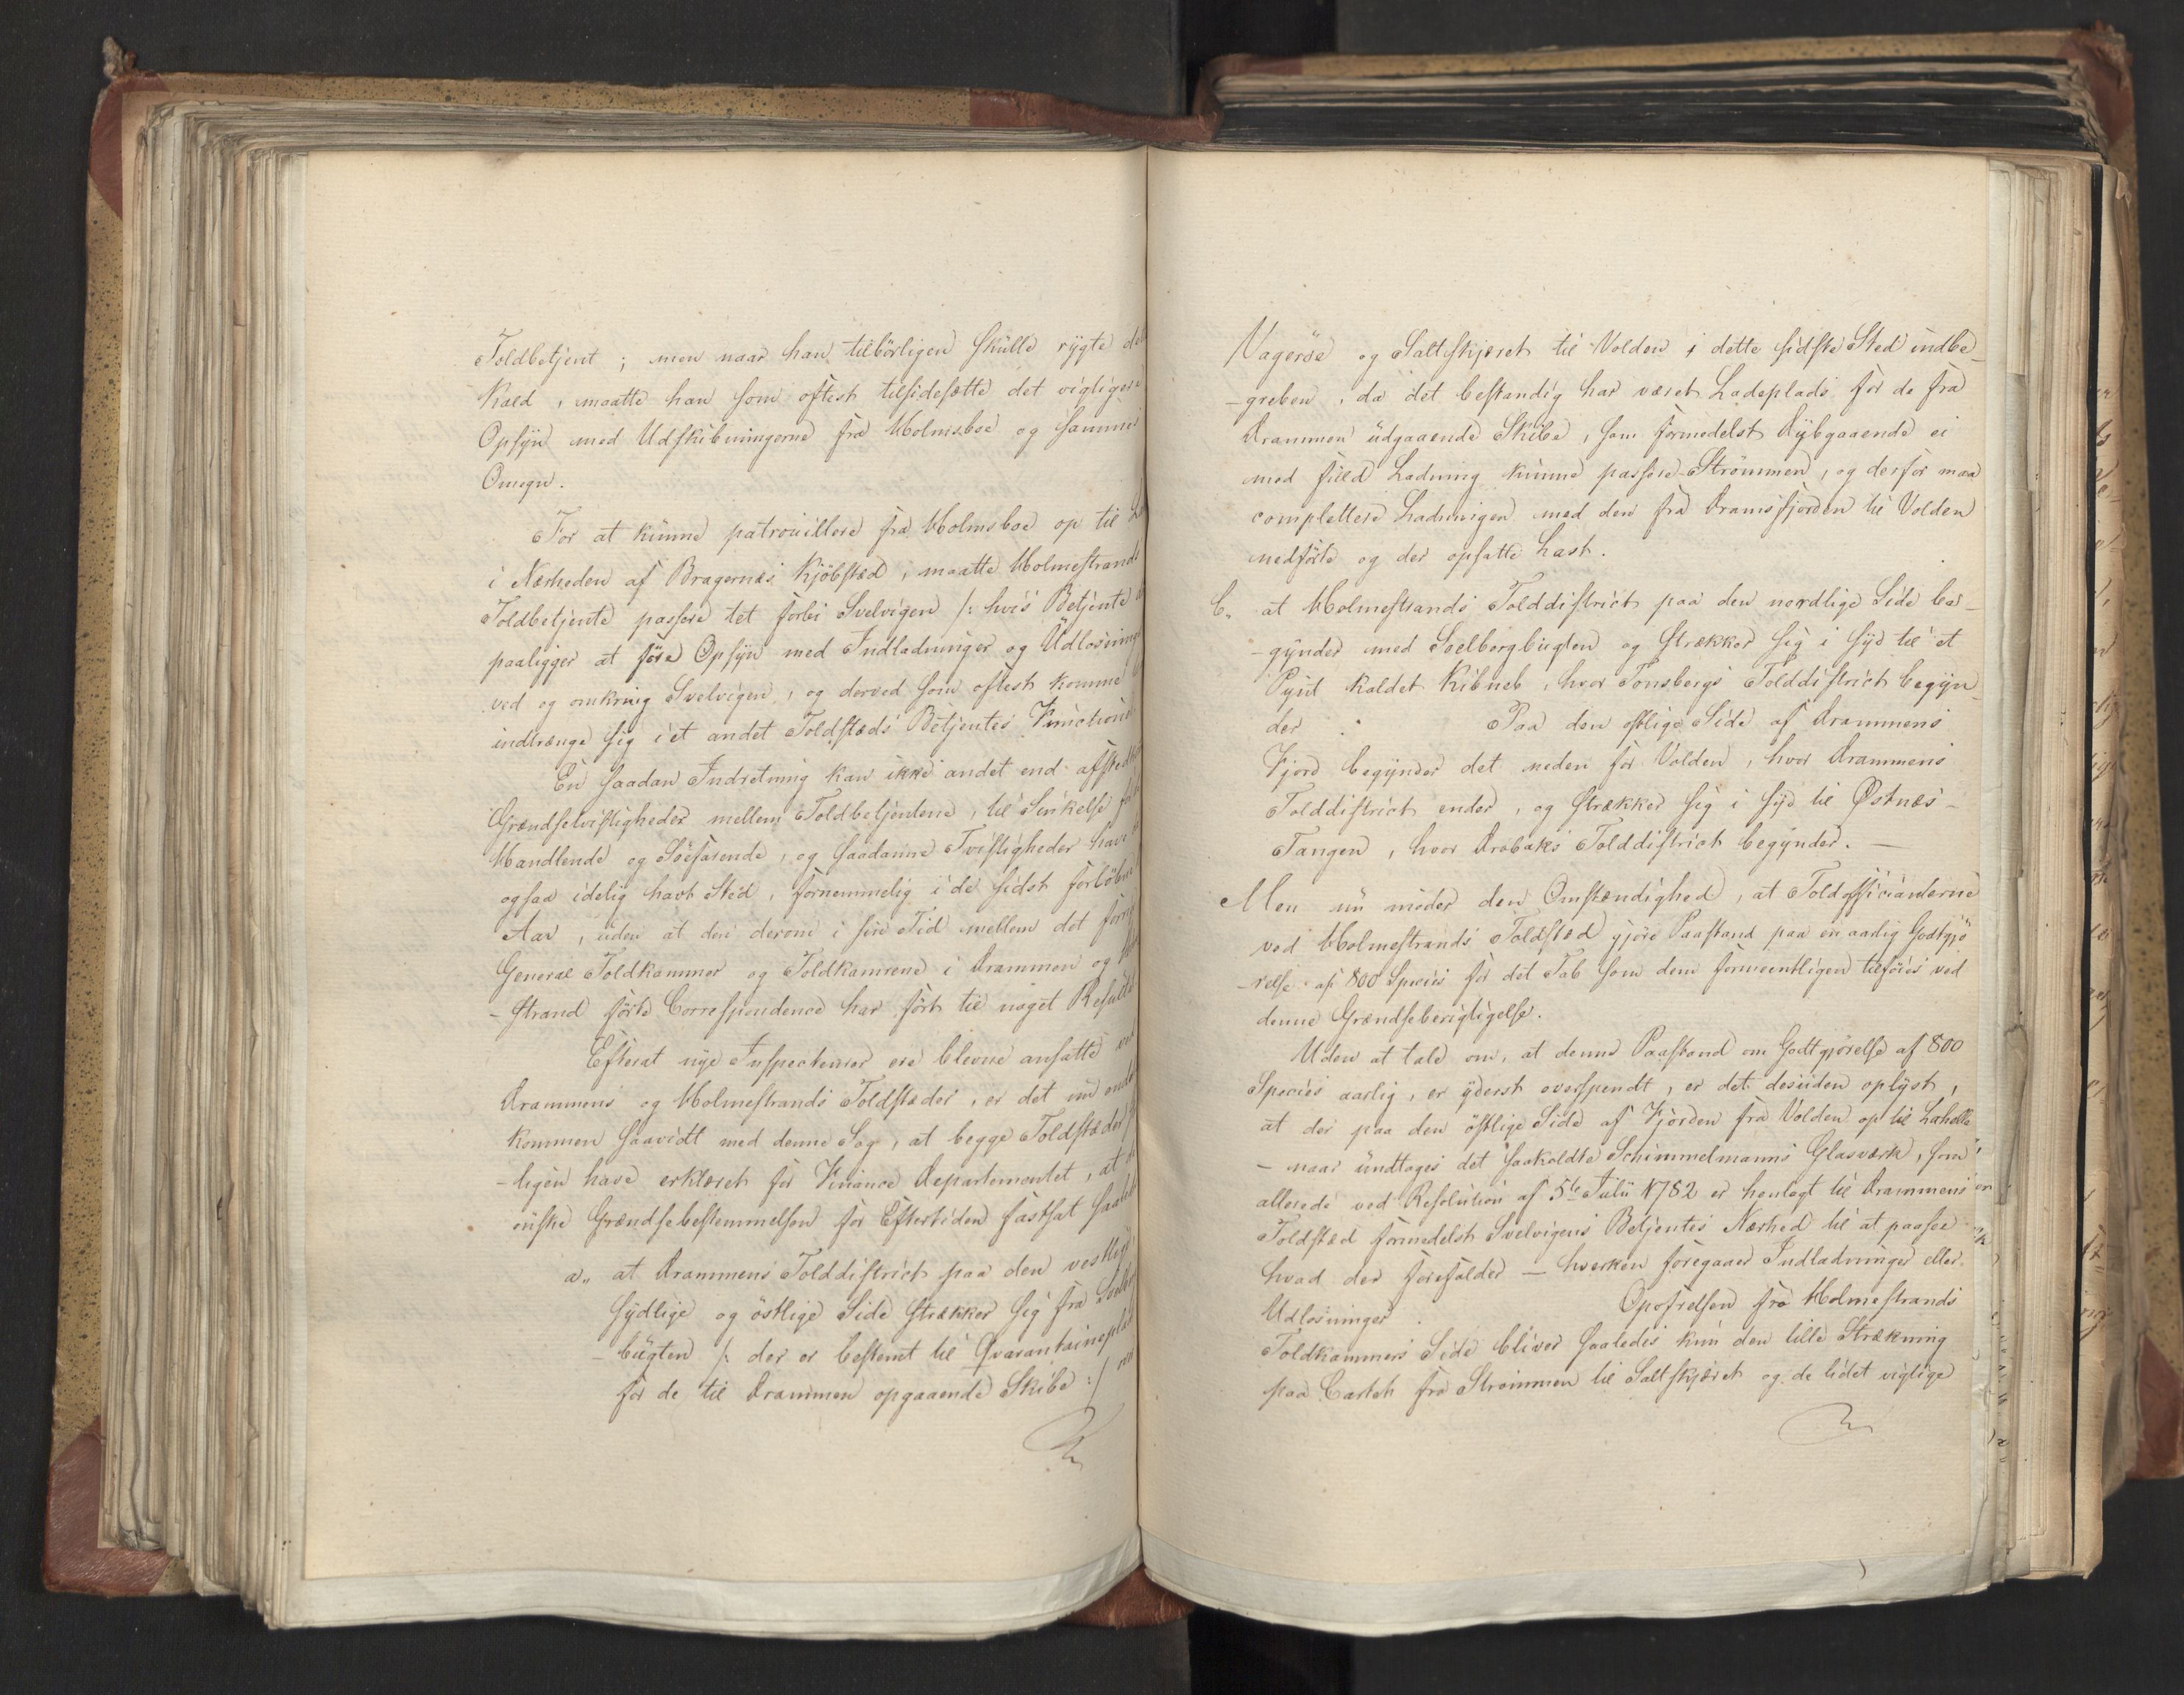 Toldbetjent; men naar han tilbörligen skulle rygte det
Kald, maatte han som oftest tilsidesætte det vigtigere
Opsyn med Udskibningerne fra Holmsboe og sammes
Omegn.
For at kunne patrouillere fra Holmsboe op til
i Nærheden af Bragernæs Kjöbstæd, maatte Holmestrands
Toldbetjente passere tet forbi Svelvigen /: hvis Betjente
paaligger at före Opsyn med Indladninger og Udlosninge
ved og omkring Svelvigen, og derved som oftest komme
indtrænge sig i et andet Toldstæds Betjentes Function
En saadan Indretning kan ikke andet end afstedk
Grændsetvistigheder mellem Toldbetjentene, til Sinkelse for
Handlende og Söefarende, og saadanne Tvistigheder have
ogsaa idelig havt Sted, fornemmelig i de sidst forlöbne
Aar, uden at den derom i sin Tid mellem det forr
General Toldkammer og Toldkamrene i Drammen og
-strand förte Correspondence har fört til noget Resulta
Efterat nye Inspecteurer ere blevne ansatte ved
Drammens og Holmestrands Toldstæder, er det nu endel
kommen saavidt med denne Sag, at begge Toldstæder
-ligen have erklæret for Finance Departementet, at
önske Grændsebestemmelsen for Eftertiden fastsat saal
a„ at Drammens Tolddistrict paa den vestlige
sydlige og östlige Side strækker sig fra Soel
-bugten /: der er bestemt til Qvarantaineplad
for de til Drammen opgaaende Skibe :/ ved
Vageröe og Saltskjæret til Volden i dette sidste Sted indbe-
-greben, da det bestandig har været Ladeplads for de fra
Drammen udgaaende Skibe, som formedelst Dybgaaende ei
med fuld Ladning kunne passere Strömmen, og derfor maa
complettere Ladningen med den fra Dramsfjorden til Volden
nedförte og der opsatte Last.
b„ at Holmestrands Tolddistrict paa den nordlige Side be-
-gynder med Soelbergbugten og strækker sig i Syd til et
Pynt kaldet Ribneb, hvor Tonsbergs Tolddistrict begyn
der. Paa den östlige Side af Drammens
Fjord begynder det neden for Volden, hvor Drammens
Tolddistrict ender, og strækker sig i Syd til Østnæs-
Tangen, hvor Drobaks Tolddistrict begynder. —
Men nu möder den Omstændighed, at Toldofficianterne
ved Holmestrands Toldstæd gjöre Paastand paa en aarlig Godtgjö
-relse af 800 Species for det Tab som dem formeentligen tilföies ved
denne Grændseberigtigelse.
Uden at tale om, at denne Paastand om Godtgjörelse af 800
Species aarlig, er yderst overspendt, er det desuden oplyst,
at der paa den östlige Side af Fjorden fra Volden op til Lahelle
- naar undtages det saakaldte Schimmelmanns Glasværk, som
allerede ved Resolution af 5te Julii 1782 er henlagt til Drammens
Toldstæd formedelst Svelvigens Betjentes Nærhed til at paasee
hvad der forefalder — hverken foregaaer Indladninger eller
Udlosninger. Opofrelsen fra Holmestrands
Toldkammers Side bliver saaledes kun den lille Strækning
paa Cartet fra Strömmen til Saltskjæret og de lidet vigtige